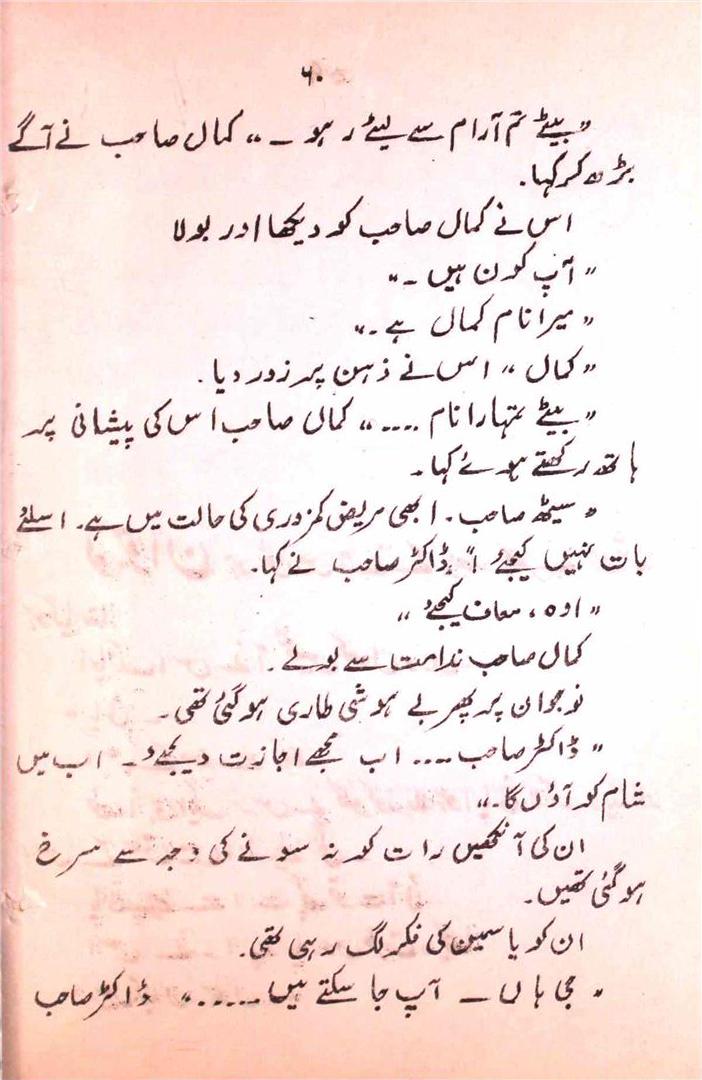 ۶۰
”بیٹے تم آرام سے لیٹے رہو۔“ کمال صاحب نے آگے
بڑھ کر کہا۔
اس نے کمال صاحب کو دیکھا اور بولا
”آپ کون ہیں۔“
”میرا نام کمال ہے۔“
”کمال“ اس نے ذہن پر زور دیا۔
”بیٹے تمہارا نام ....“ کمال صاحب اس کی پیشانی پر
ہاتھ رکھتے ہوئے کہا۔
”سیٹھ صاحب۔ ابھی مریض کمزوری کی حالت میں ہے۔ اسلئے
بات نہیں کیجئے!“ ڈاکٹر صاحب نے کہا۔
”اوہ، معاف کیجئے“
کمال صاحب ندامت سے بولے۔
نوجوان پر پھر بے ہوشی طاری ہو گئی تھی۔
”ڈاکٹر صاحب .... اب مجھے اجازت دیجئے۔ اب میں
شام کو آؤں گا۔“
ان کی آنکھیں رات کو نہ سونے کی وجہ سے سرخ
ہو گئی تھیں۔
ان کو یاسمین کی فکر لگ رہی تھی۔
”جی ہاں۔ آپ جا سکتے ہیں .....“ ڈاکٹر صاحب